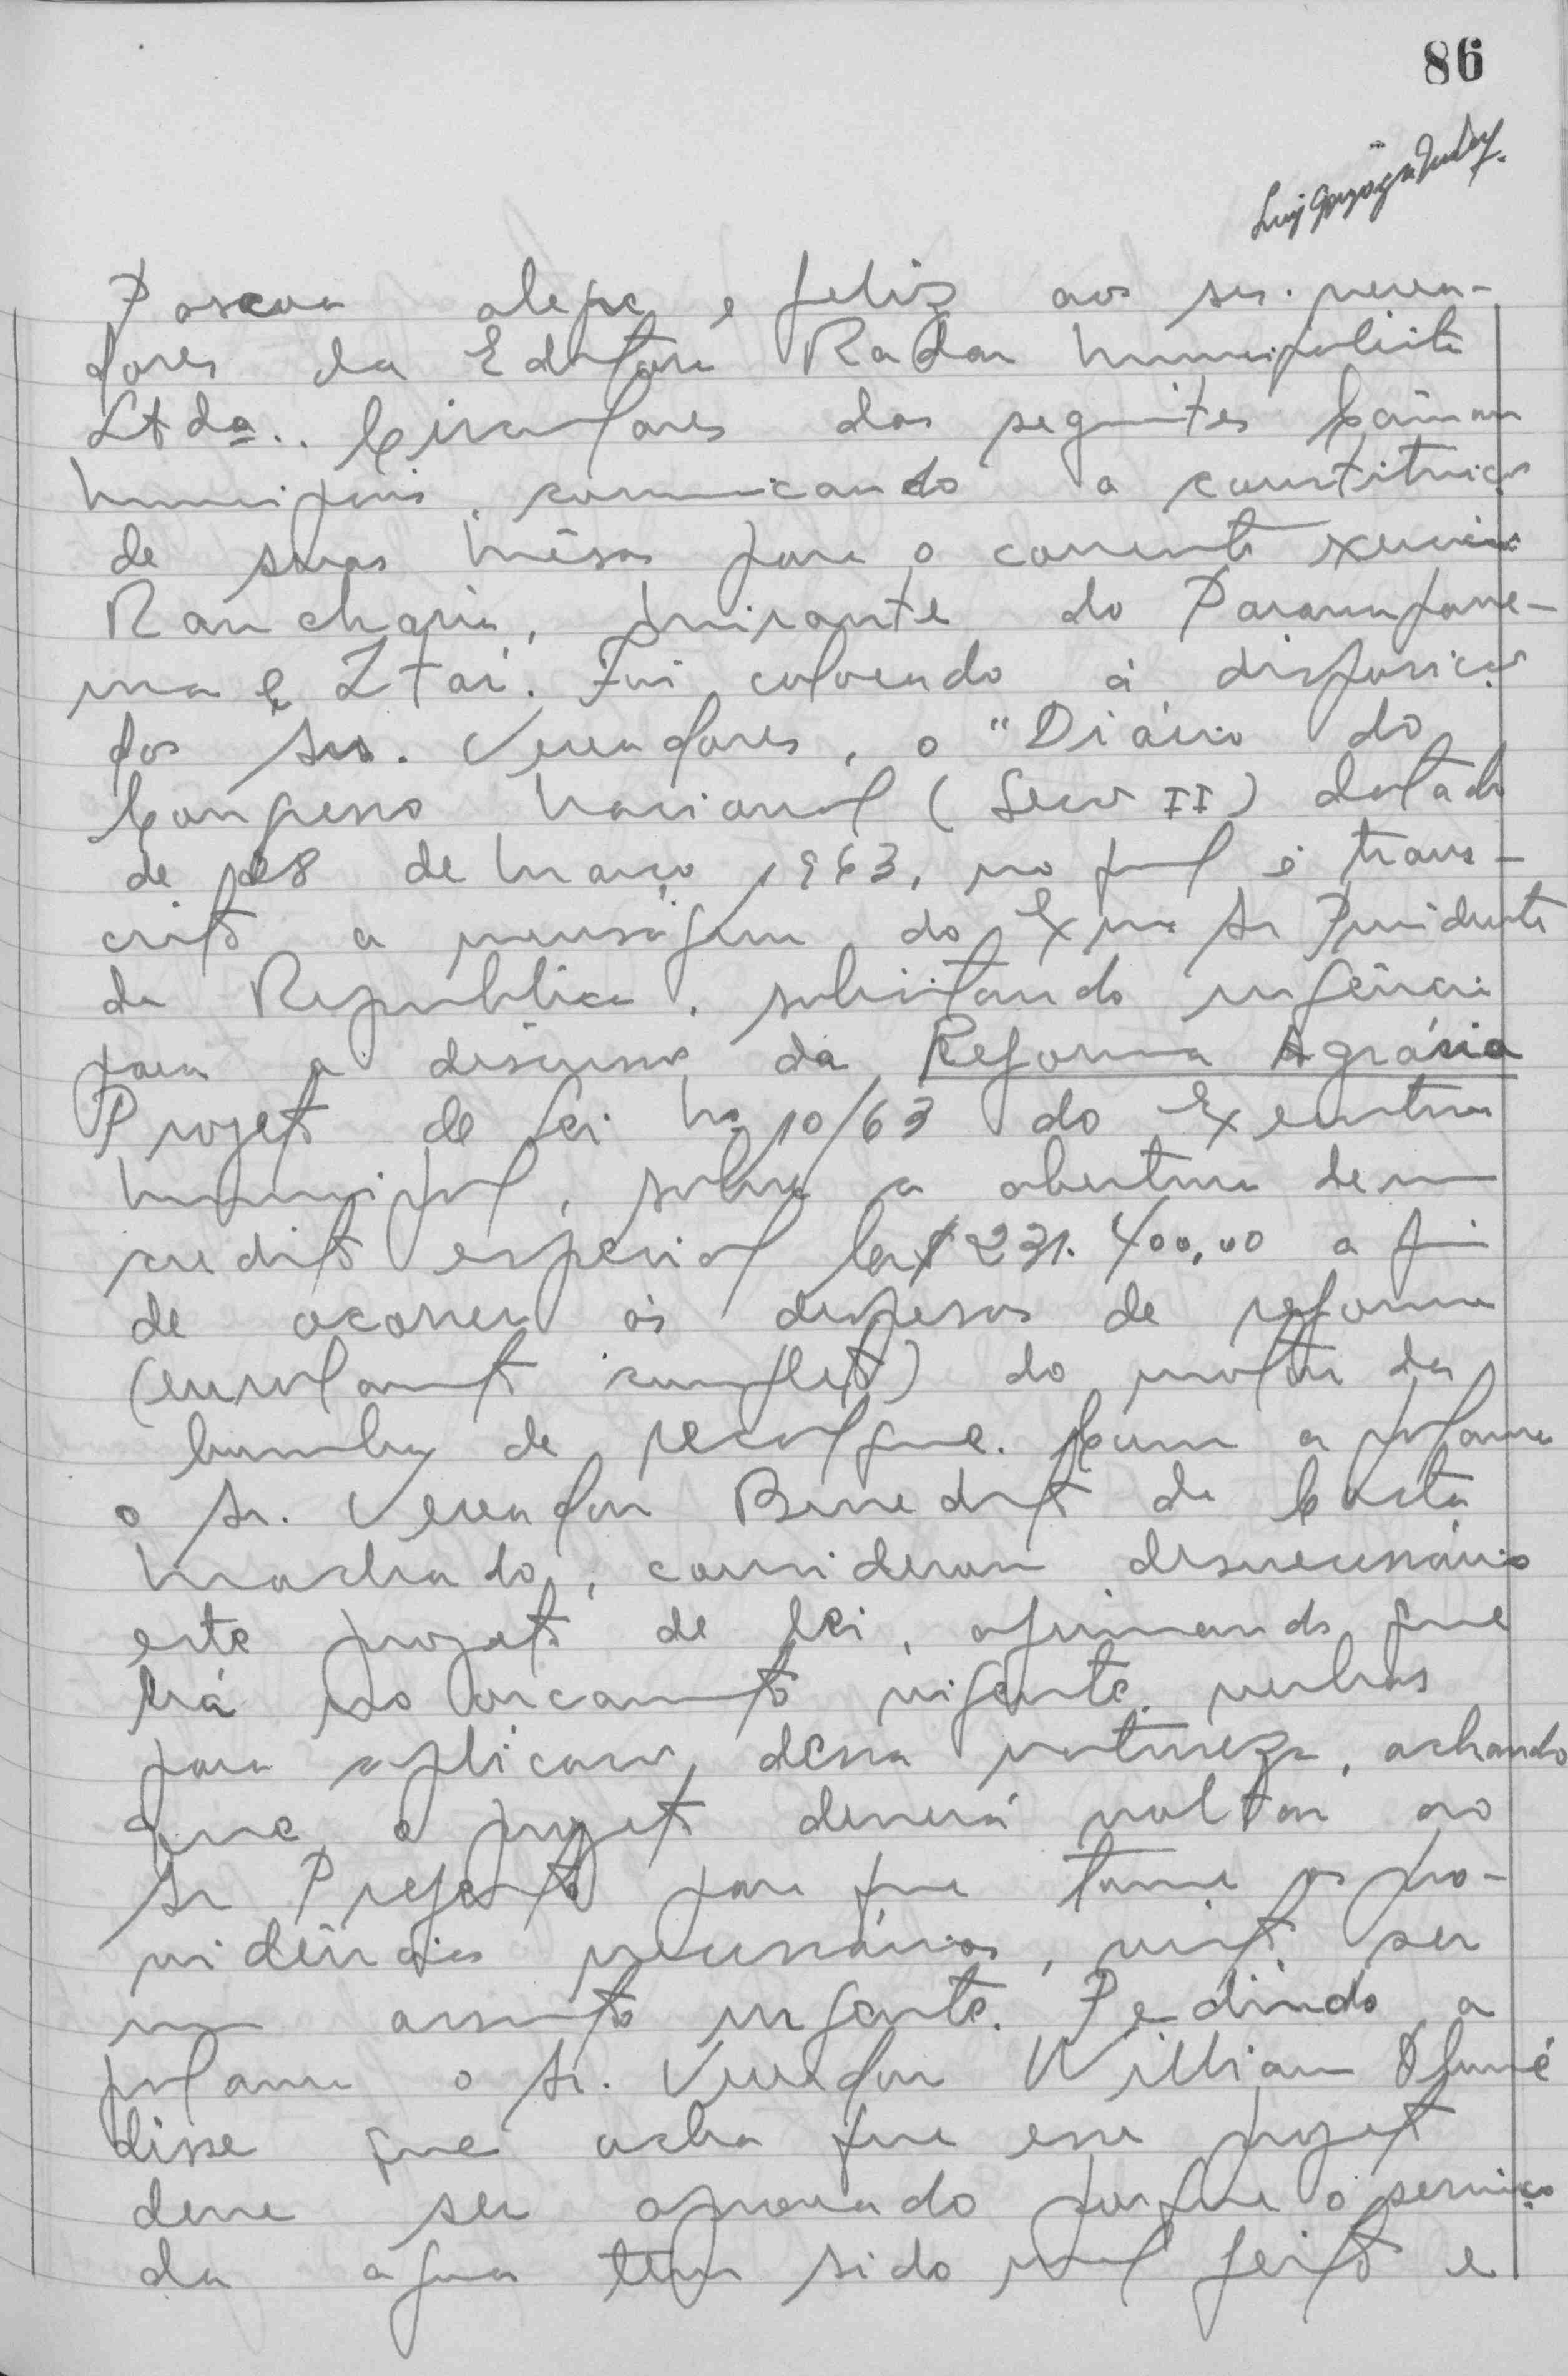 86
Pascoa alegre e feliz aos srs. verea-
dores da Editora Radar Municipalista
Ltda.. Circulares das seguintes Câmaras
Municipais, comunicando a constituição
de suas Mêsas para o corrente exercicio
Rancharia, Mirante do Paranapane-
ma e Itaí. Foi colocado à disposição
dos Srs. Vereadores, o "Diário do
Congresso Nacional (Seção II) datado
de 28 de Março 1963, no qual é trans-
crito a menságem do Exmo Sr Presidente
da Republica, solicitando urgência
para a discussão da Reforma Agrária
Projeto de lei No 10/63 do Executivo
Municipal, sobre a abertura de um
credito especial Cr$ 231.400,00 a fim
de ocorrer às despesas de reforma
(enrolamento completo) do motor da
bomba de recalque. Com a palavra
o Sr. Vereador Benedito da Costa
Machado, consideram desnecessário
este projeto de lei, afirmando que
há no orcamento vigente, verbas
para aplicação dessa natureza, achando
que o projeto deverá voltar ao
Sr Prefeito para que tome as pro-
vidências necessárias, visto ser
um assunto urgente. Pedindo a
palavra o Sr. Vereador William
disse que acha que esse projeto
deve ser aprovado porque o serviço
da agua tem sido mal feito e